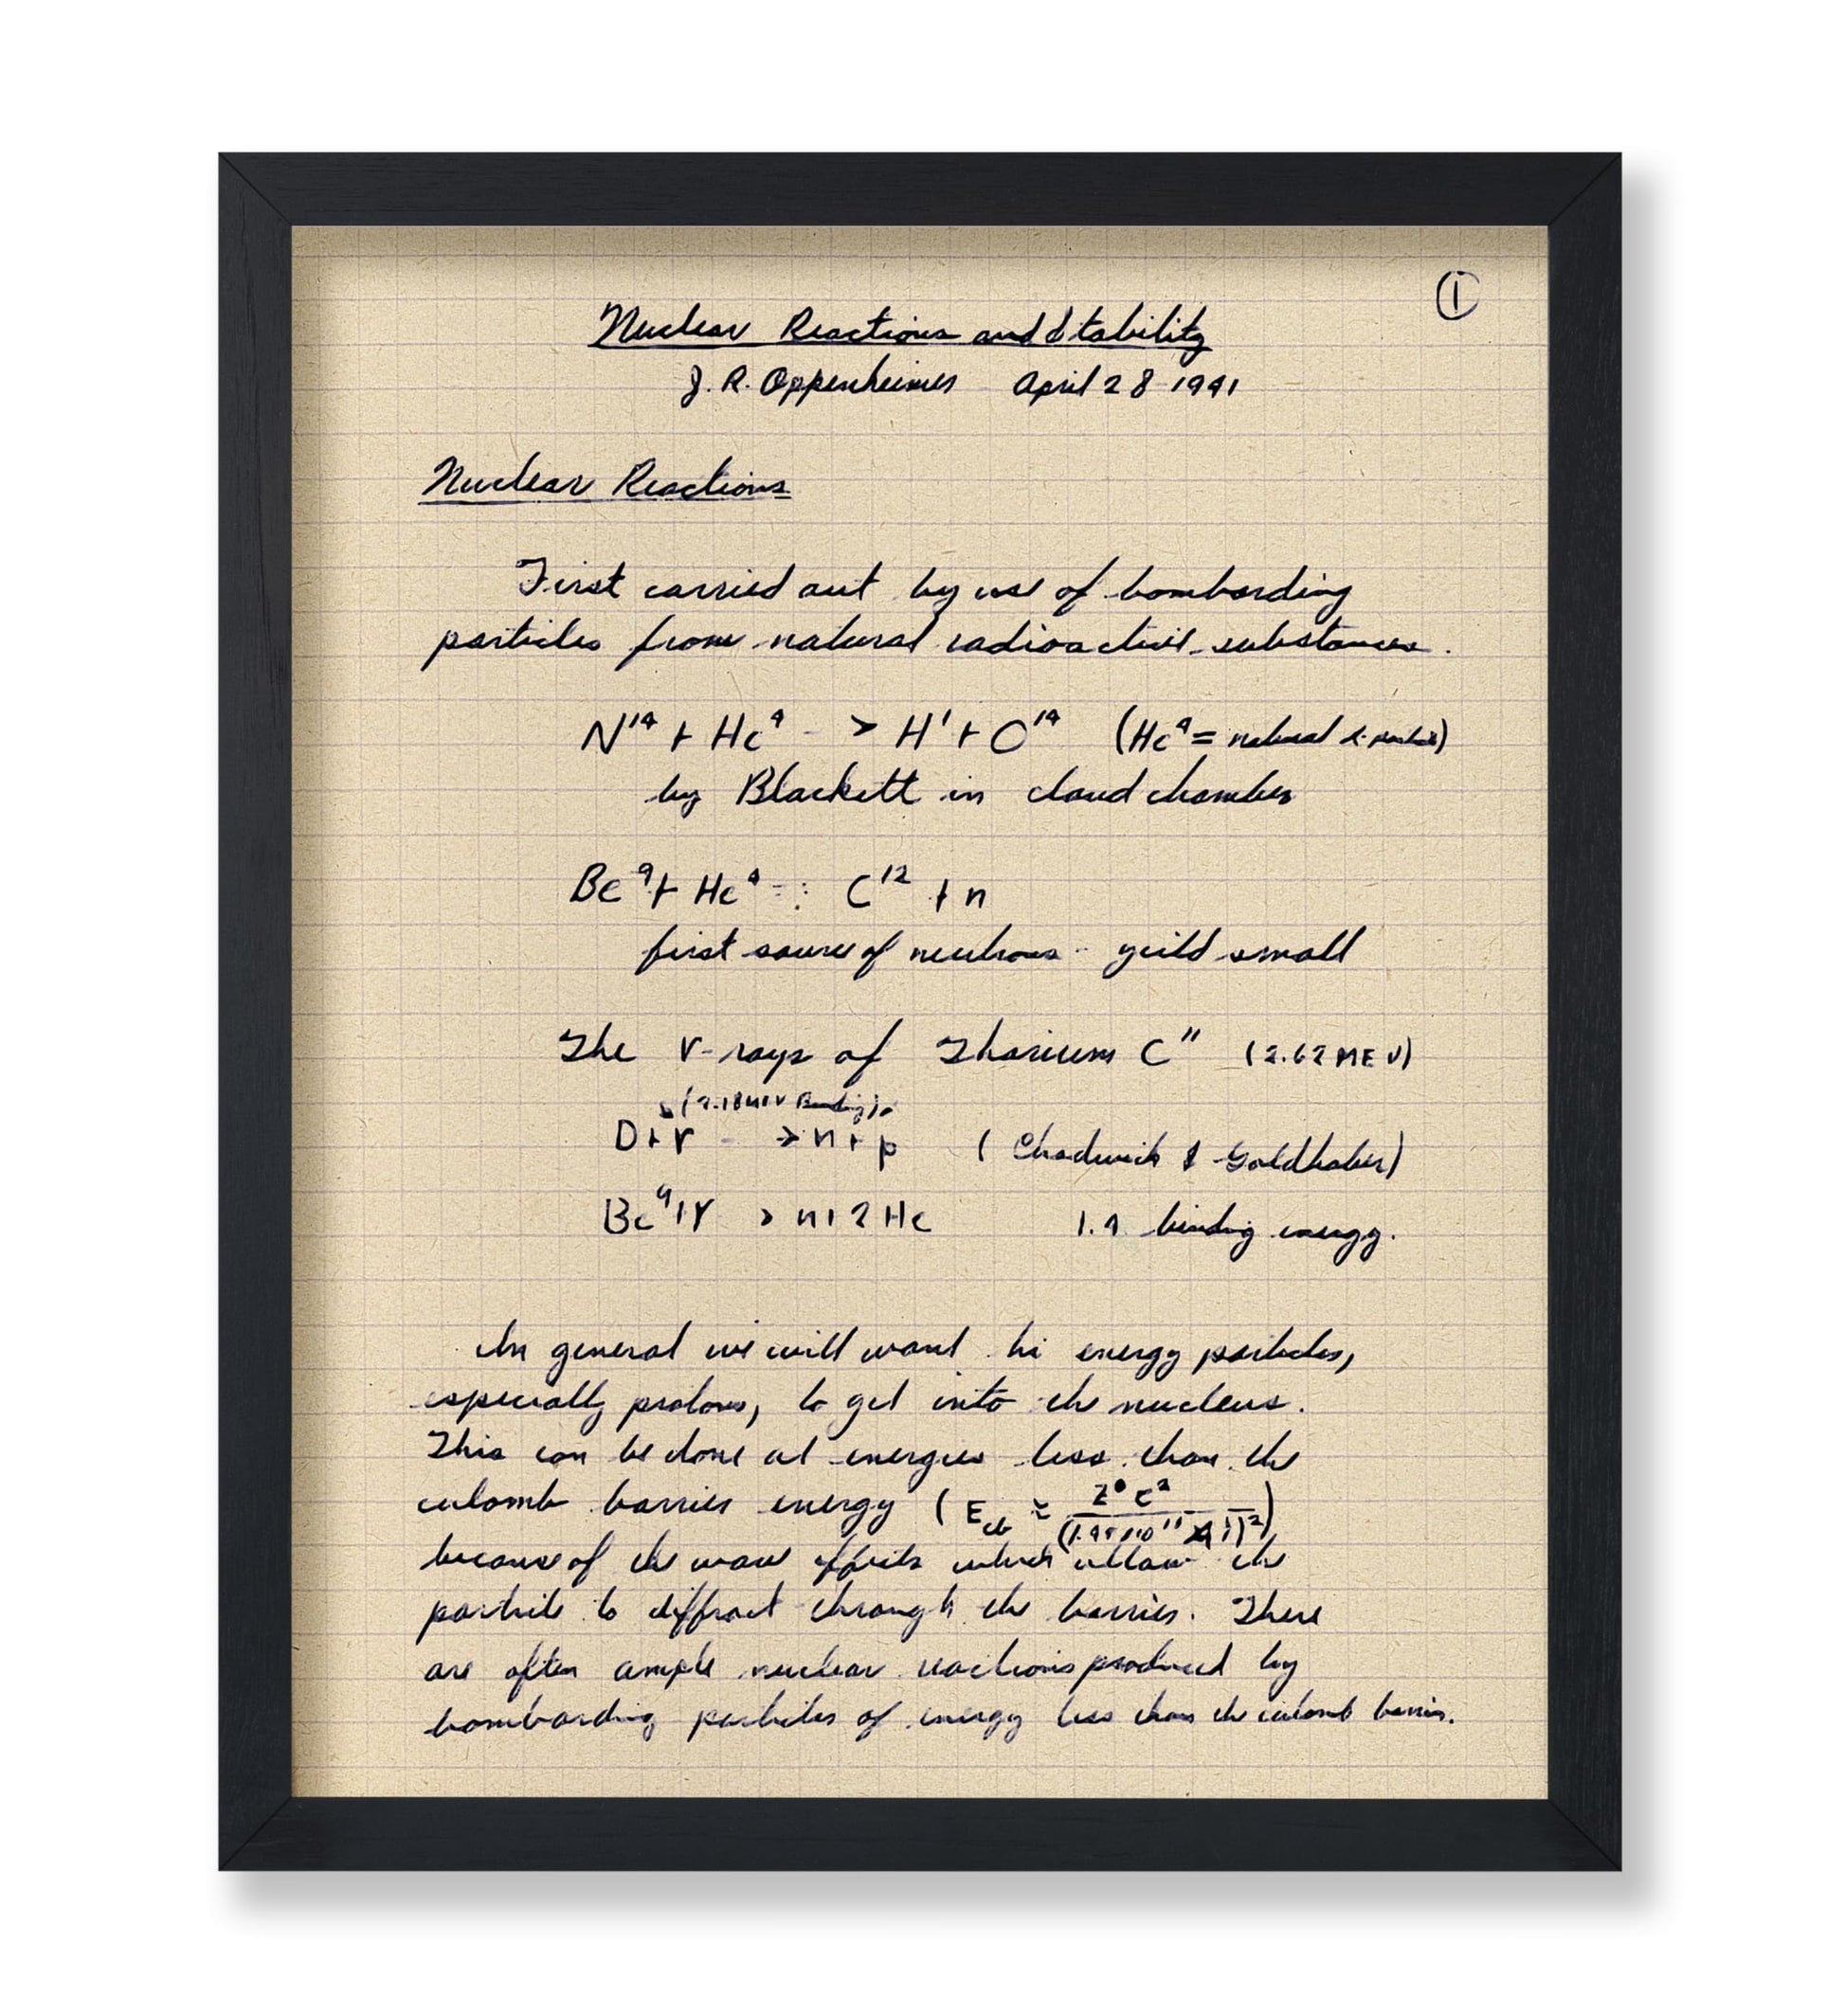 ①
Nuclear Reactions and Stability
J. R. Oppenheimer April 28 1941
Nuclear Reactions
First carried out by use of bombarding
particles from natural radioactive substances.
N¹⁴ + He⁴ -> H¹ + O¹⁴ (He⁴ = natural α-particle)
by Blackett in cloud chamber
Be⁹ + He⁴ C¹² + n
first source of neutrons - yeild small
The γ-rays of Thorium C" (2.62 MEV)
(2.18 MEV Binding)
D + γ -> n + p (Chadwick & Goldhaber)
Be⁹ + γ > n + 2 He binding energy.
In general we will want hi energy particles,
especially protons, to get into the nucleus.
This can be done at energies less than the
culomb barrier energy (E
because of the wave effects which allow the
particle to diffract through the barrier. There
are often ample nuclear reactions produced by
bombarding particles of energy less than the culomb barrier.